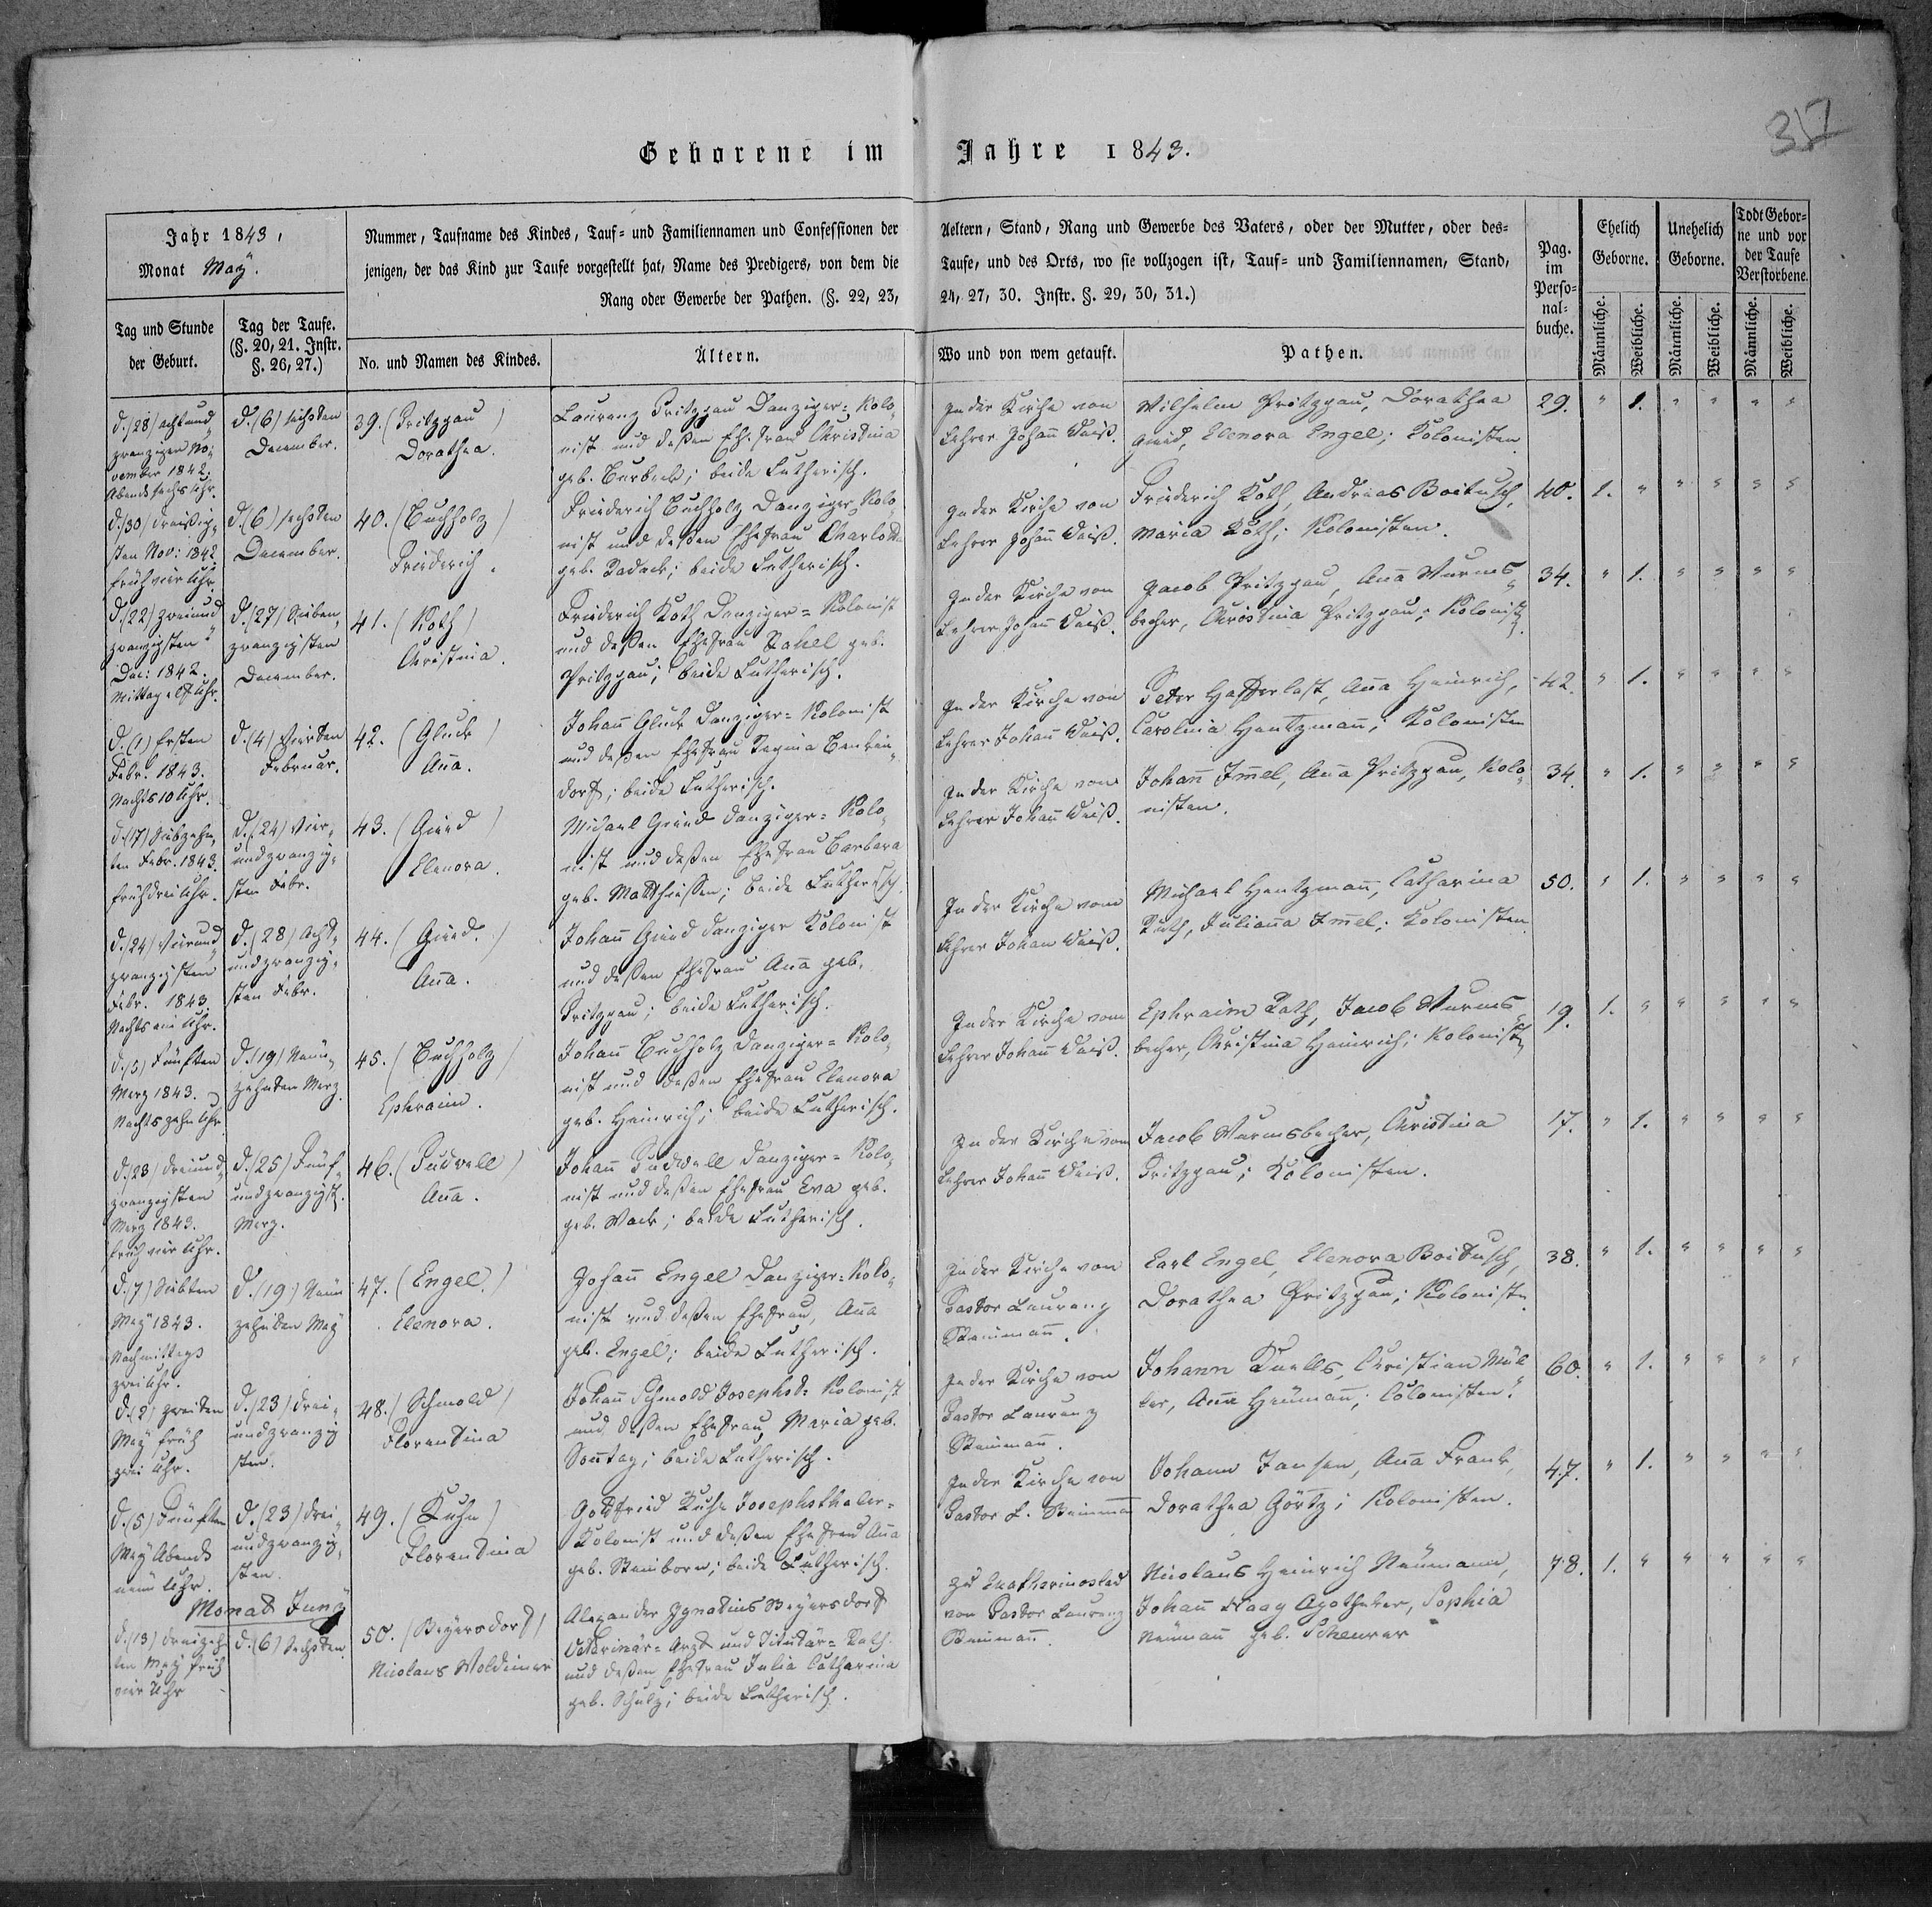 317
Geborene im Jahre 1843.
Jahr 1843,
Monat Maÿ.
Tag und Stunde
der Geburt.
Tag der Taufe.
(§. 20, 21. Instr.
§. 26, 27.)
Nummer, Taufname des Kindes, Tauf- und Familiennamen und Confessionen der Aeltern, Stand, Rang und Gewerbe des Vaters, oder der Mutter, oder des-
jenigen, der das Kind zur Taufe vorgestellt hat, Name des Predigers, von dem die Taufe, und des Orts, wo sie vollzogen ist, Tauf- und Familiennamen, Stand,
Rang oder Gewerbe der Pathen. (§. 22, 23, 24, 27, 30. Instr. §. 29, 30, 31.)
No. und Namen des Kindes.
Ältern.
Wo und von wem getauft.
Pathen.
Pag.
im
Perso-
nal-
buche.
Ehelich
Geborne.
Unehelich
Geborne.
Todt Gebor-
ne und vor
der Taufe
Verstorbene.
Männliche.
Weibliche.
Männliche.
Weibliche.
Männliche.
Weibliche.
d. (28) achtund
zwanziger No-
vember 1842.
Abends sechs Uhr.
d. (6) sechsten
December.
39. (Pritzgau)
Dorathea.
Laurenz Pritzgau Danziger-Kolo-
nist und deßen Eh. frau Christina
geb. ; beide Lutherisch.
In der Kirche von
Lehrer Johañ Weiß.
Wilhelm Pritzgau, Dorathea
Elenora Engel; Kolonisten
29. " 1. " " " "
d. (30) dreißig-
sten Nov: 1842
früh vier Uhr.
d. (6) sechsten
December.
40. (Buchholz)
Friederich.
Friederich Buchholz Danziger Kolo
nist und deßen Ehefrau Charlot
geb. Radack; beide Lutherisch.
In der Kirche von
Lehrer Johañ Weiß.
Friederich Roth, Andreas Boitusch,
Maria Roth; Kolonisten.
40. 1. " " " " "
d. (22) zweiund
zwanzigsten
Dec: 1842.
Mittag Uhr.
d. (27) Sieben
zwanzigsten
December.
41. (Roth)
Christina.
Friederich Roth Danziger-Kolonist
und deßen Ehefrau Rahel geb.
Pritzgau; beide Lutherisch.
In der Kirche von
Lehrer Johañ Weiß.
Jacob Pritzgau, Aña Wurms-
becher, Christina Pritzgau; Kolonist
34. " 1. " " " "
d. (1) Ersten
Febr. 1843.
Nachts 10 Uhr.
d. (4) Vierten
Februar.
42. (Gluck)
Aña.
Johañ Gluck Danziger-Kolonist
und deßen Ehefrau Regina Benken-
dorf; beide Lutherisch.
In der Kirche von
Lehrer Johañ Weiß.
Peter Haffterlast, Aña Heinrich,
Carolina Hentzmañ; Kolonisten
42. " 1. " " " "
d. (17) Siebzehn-
ten Febr. 1843.
früh drei Uhr.
d. (24) Vier-
undzwanzig-
sten Febr.
43.
Elenora.
Michael Danziger-Kolo-
nist und deßen Ehefrau Barbara
geb. Matthießen; beide Lutherisch.
In der Kirche vom
Lehrer Johañ Weiß.
Johañ Im̄el, Aña Pritzgau, Kolo-
nisten.
34. " 1. " " " "
d. (24) Vierund
zwanzigsten
Febr. 1843.
Nachts ein Uhr.
d. (28) Acht-
undzwanzig-
sten Febr.
44.
Aña.
Johañ Danziger Kolonist
und deßen Ehefrau Aña geb.
Pritzgau; beide Lutherisch.
In der Kirche vom
Lehrer Johan Weiß.
Michael Hentzmañ, Catharina
Rath, Juliaña Im̄el; Kolonisten
50. " 1. " " " "
d. (5) Fünften
Merz 1843.
Nachts zehn Uhr.
d. (19) Neun-
zehnten Merz
45. (Buchholz)
Ephraim.
Johañ Buchholz Danziger-Kolo-
nist und deßen Ehefrau Elenora
geb. Heinrich; beide Lutherisch.
In der Kirche vom
Lehrer Johañ Weiß.
Ephraim Rath, Jacob Wurms-
becher, Christina Heinrich; Kolonist
19. 1. " " " " "
d. (23) dreiund-
zwanzigsten
Merz 1843.
früh vier Uhr.
d. (25) Fünf-
undzwanzigst.
Merz.
46. (Pudwell)
Aña.
Johañ Pudwell Danziger-Kolo-
nist und deßen Ehefrau Eva geb.
geb. Wack; beide Lutherisch.
In der Kirche vom
Lehrer Johañ Weiß.
Jacob Wurmsbecher, Christina
Pritzgau; Kolonisten.
17. " 1. " " " "
d. (7) Siebten
Maÿ 1843.
Nachmittags
zwei Uhr.
d. (19) Neun
zehnten Maÿ
47. (Engel.)
Elenora.
Johañ Engel Danziger-Kolo-
nist und deßen Ehefrau, Aña
geb. Engel; beide Lutherisch.
In der Kirche vom
Pastor Laurenz
Steinmañ.
Carl Engel, Elenora Boitusch,
Dorathea Pritzgau; Koloniste
38. " 1. " " " "
d. (2) zweiten
Maÿ früh
zwei Uhr.
d. (23) drei-
undzwanzig
sten.
48. (Schmold)
Florentina
Johañ Schmold Josephst: Kolonist
und deßen Ehefrau Maria geb.
Soñtag; beide Lutherisch.
In der Kirche von
Pastor Laurenz
Steinmañ.
Johann , Christian Mül
ler, Aña Heinmañ; Colonisten.
60. " 1. " " " "
d. (5) Fünften
Maÿ Abends
neun Uhr.
d. (23) drei-
undzwanzig-
sten.
49. (Kuhn)
Florentina
Gottfried Kuhn Josephsthaler-
Kolonist und deßen Ehefrau Aña
geb. Steinborn; beide Lutherisch.
In der Kirche von
Pastor L. Steinmañ
Johann Jansen, Aña Frank,
Dorathea Görtz; Kolonisten.
47. " 1. " " " "
Monat Junÿ
d. (13) dreizehn
ten Maÿ früh
vier Uhr
d. (6) Sechsten.
50. (Beyersdorf)
Nicolaus Woldimar
Alexander Ignatius Beyersdorf
Veterinär-Arzt und Titulär-Rath.
und deßen Ehefrau Julia Catharina
geb. Schulz; beide Lutherisch.
Zu Ekatherinoslav
von Pastor Laurenz
Steinmañ.
Nicolaus Heinrich Neumann,
Johañ Haag Apotheker, Sophia
Neumañ geb. Scheurer
78. 1. " " " " "